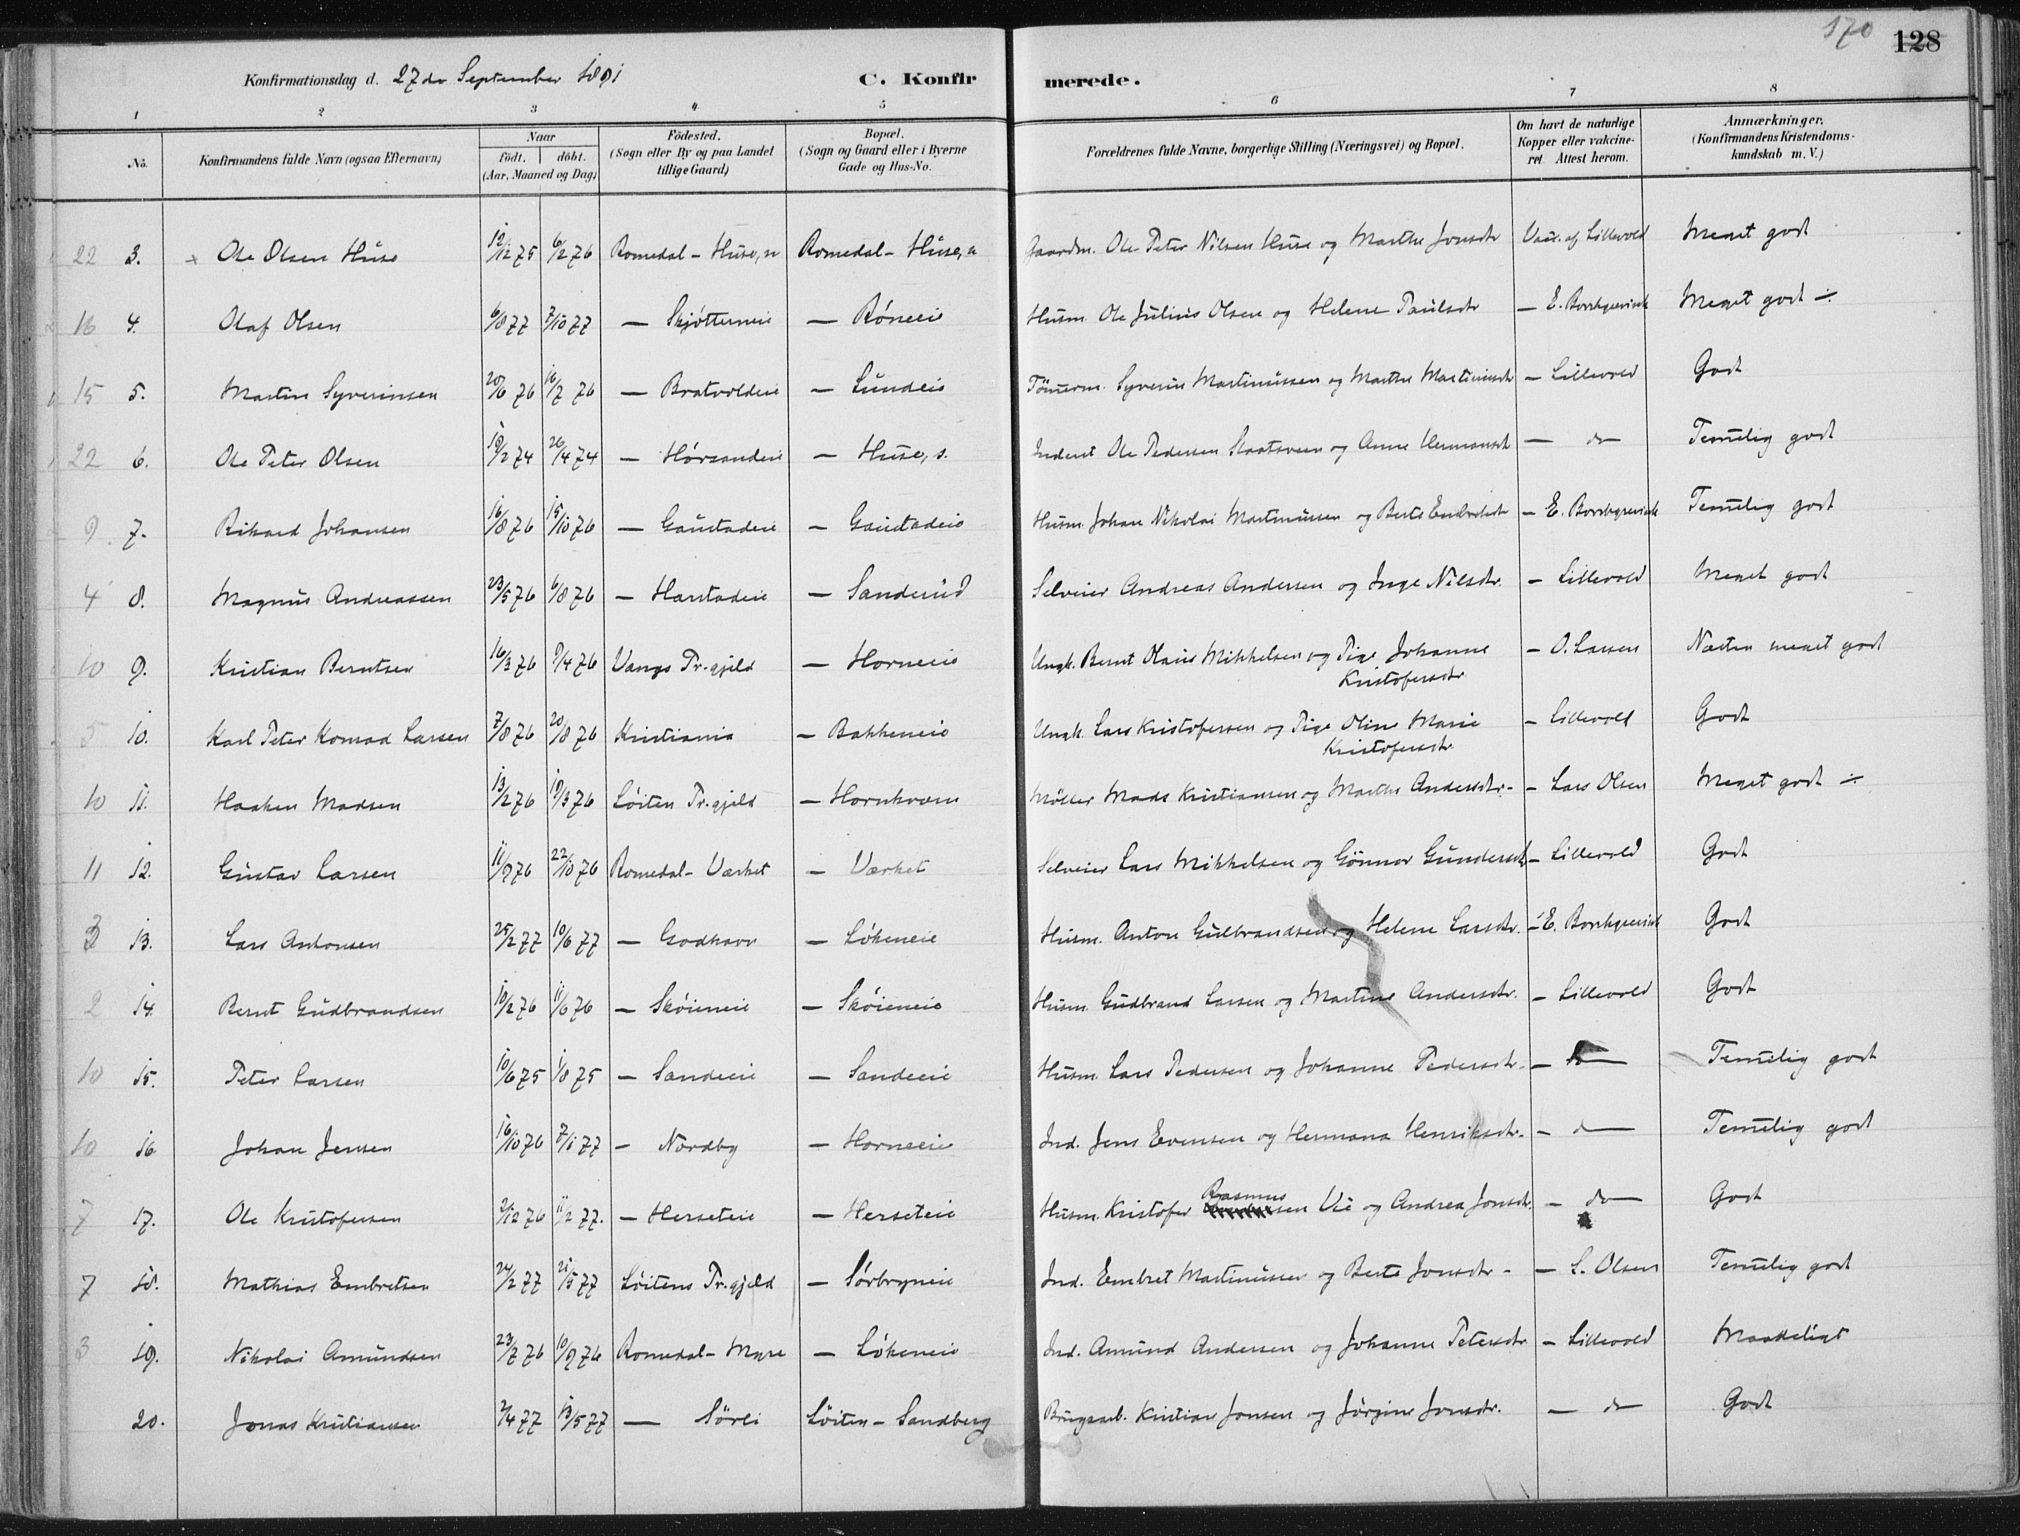 170 128
Konfirmationsdag d. 27de September 1891 C. Konfir merede.
1 2 3 4 5 6 7 8
No. Konfirmandens fulde Navn (ogsaa Efternavn) Naar födt. döbt. (Aar, Maaned og Dag) Födested. (Sogn eller By og paa Landet tillige Gaard) Bopæl. (Sogn og Gaard eller i Byerne Gade og Hus-No. Forældrenes fulde Navne, borgerlige Stilling (Næringsvei) og Bopæl. Om havt de naturlige Kopper eller vakcineret Attest herom. Anmærkninger. (Konfirmandens Kristendomskundskab m. V.)
22 3. Ole Olsen Huse 12/12 75 6/2 76 Romedal - Huse, n Romedal - Huse, n Gaardm. Ole Peter Nilsen Huse og Marthe Jonsdtr Vac. af Lillevold Meget godt
16 4. Olaf Olsen 6/8 77 7/10 77 — Skjötterneie — Röneeie Husm. Ole Julius Olsen og Helene Paulsdtr — E. Borchgrevink Meget godt ÷
15 5. Martin Syverinsen 20/6 76 16/7 76 — Bratvoldeie — Lundeie Tömerm. Syverin Martinussen og Marthe Martinusdtr — Lillevold Godt
22 6. Ole Peter Olsen 19/2 74 26/4 74 — Hörsandeie — Huse, s. Inderst Ole Pedersen Slaatsveen og Anne Hermansdt — do Temelig godt
9 7. Rikard Johansen 16/8 76 15/10 76 — Gaustadeie — Gaustadeie Husm. Johan Nikolai Martinussen og Berte Embretsdt — E. Borchgrevink Temelig godt
4 8. Magnus Andreassen 23/5 76 6/8 76 — Harstadeie — Sanderud Selveier Andreas Andersen og Inge Nilsdtr. — Lillevold Meget godt
10 9. Kristian Berntsen 16/3 76 9/4 76 Vangs Pr.gjeld — Horneeie Ungk. Bernt Olaus Mikkelsen og Pige Johanne Kristofersdtr — O. Larsen Næsten meget godt
5 10. Karl Peter Konrad Larsen 7/8 76 20/8 76 Kristiania — Bakkeneie Ungk. Lars Kristofersen og Pige Oline Marie Kristofersdtr. — Lillevold Godt
10 11. Haaken Madsen 13/2 76 19/3 76 Löiten Pr.gjeld — Hornkværn Möller Mads Kristiansen og Marthe Andersdtr. — Lars Olsen Meget godt ÷
11 12. Gustav Larsen 11/9 76 22/10 76 Romedal - Værket — Værket Selveier Lars Mikkelsen og Gönnor Gundersdt — Lillevold Godt
3 13. Lars Antonsen 25/2 77 10/6 77 — Godhavn — Lökeneie Husm. Anton Gulbrandsen og Helene Larsdtr. — E. Borchgrevink Godt
2 14. Bernt Gudbrandsen 10/2 76 11/6 76 — Sköieneie — Sköieneie Husm. Gudbrand Larsen og Martine Andersdtr. — Lillevold Godt
10 15. Peter Larsen 10/6 75 1/8 75 — Sandeeie — Sandeeie Husm. Lars Pedersen og Johanne Pedersdtr. — do Temelig godt
10 16 Johan Jensen 16/10 76 7/1 77 — Nordby — Horneeie Ind. Jens Evensen og Hermana Henriksdtr. — do Temelig godt
7 17. Ole Kristofersen 2/12 76 11/2 77. — Herseteie — Herseteie Husm. Kristofer Rasmussen Vie og Andrea Jonsdtr. — do Godt
7 18. Mathias Embretsen 24/2 77 21/5 77 Löitens Pr.gjeld — Sörbryneie Ind. Embret Martinussen og Berte Jonsdtr — L. Olsen Temelig godt
3 19. Nikolai Amundsen 23/7 76 10/9 76 Romedal - Myre — Lökeneie Ind. Amund Andersen og Johanne Petersdtr — Lillevold Maadeligt
20. Jonas Kristiansen 2/4 77 13/5 77 — Sörli Löiten - Sandberg Brugsarb. Kristian Jonsen og Jörgine Jonsdtr. — do Godt